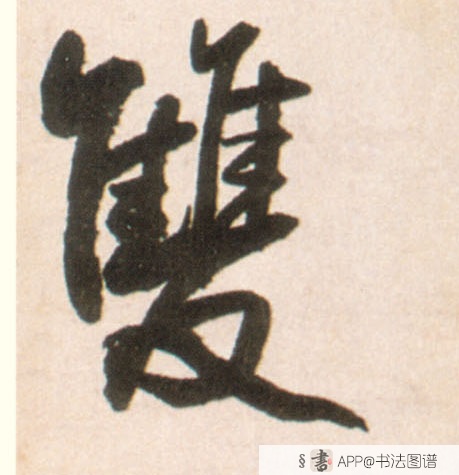 雙
§ 書 APP@书法图谱